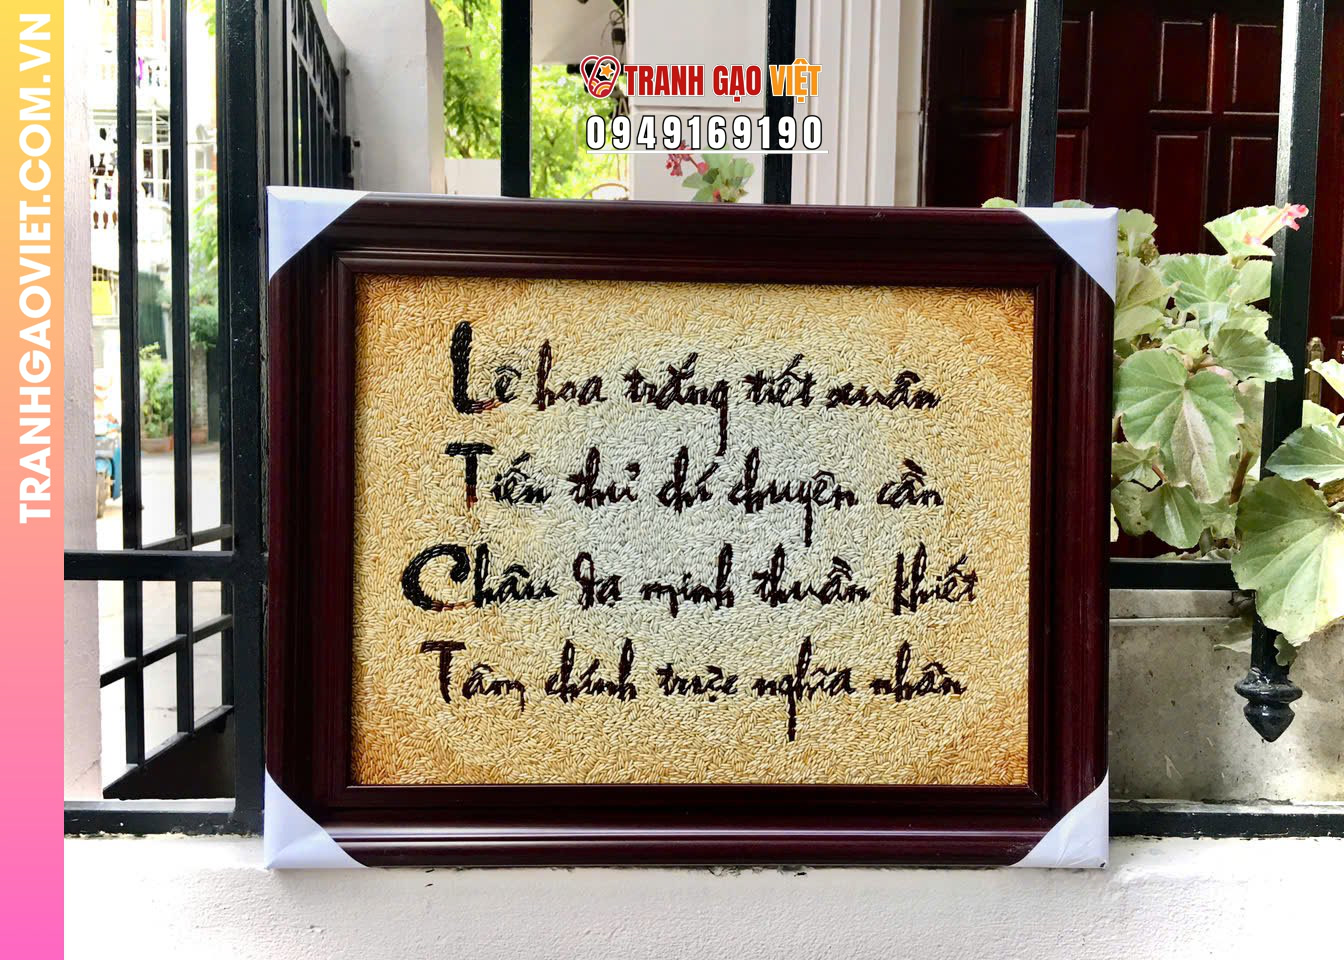 TRANHGAOVIET.COM.VN
TRANH GẠO VIỆT
0949169190
Lê hoa trắng tiết xuân
Tiến thủ chí chuyên cần
Châu dạ minh thuần khiết
Tâm chính trực nghĩa nhân